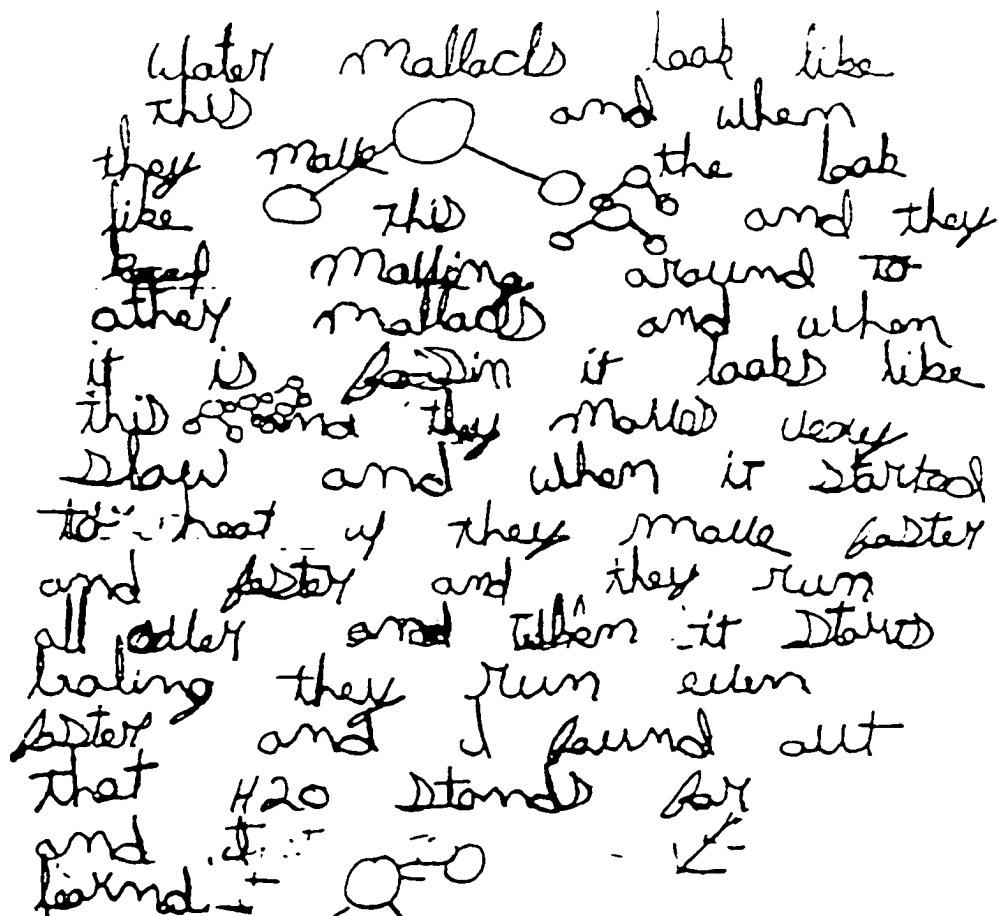 Water mallacls look like
this and when
they move the look
like this and they
keep moving around to
other mallacls and when
it is frozin it looks like
this and they moves very
slow and when it started
to heat up they move faster
and faster and they run
all odler and when it starts
boling they run even
faster and I found out
that H2O stands for
and I
learnd